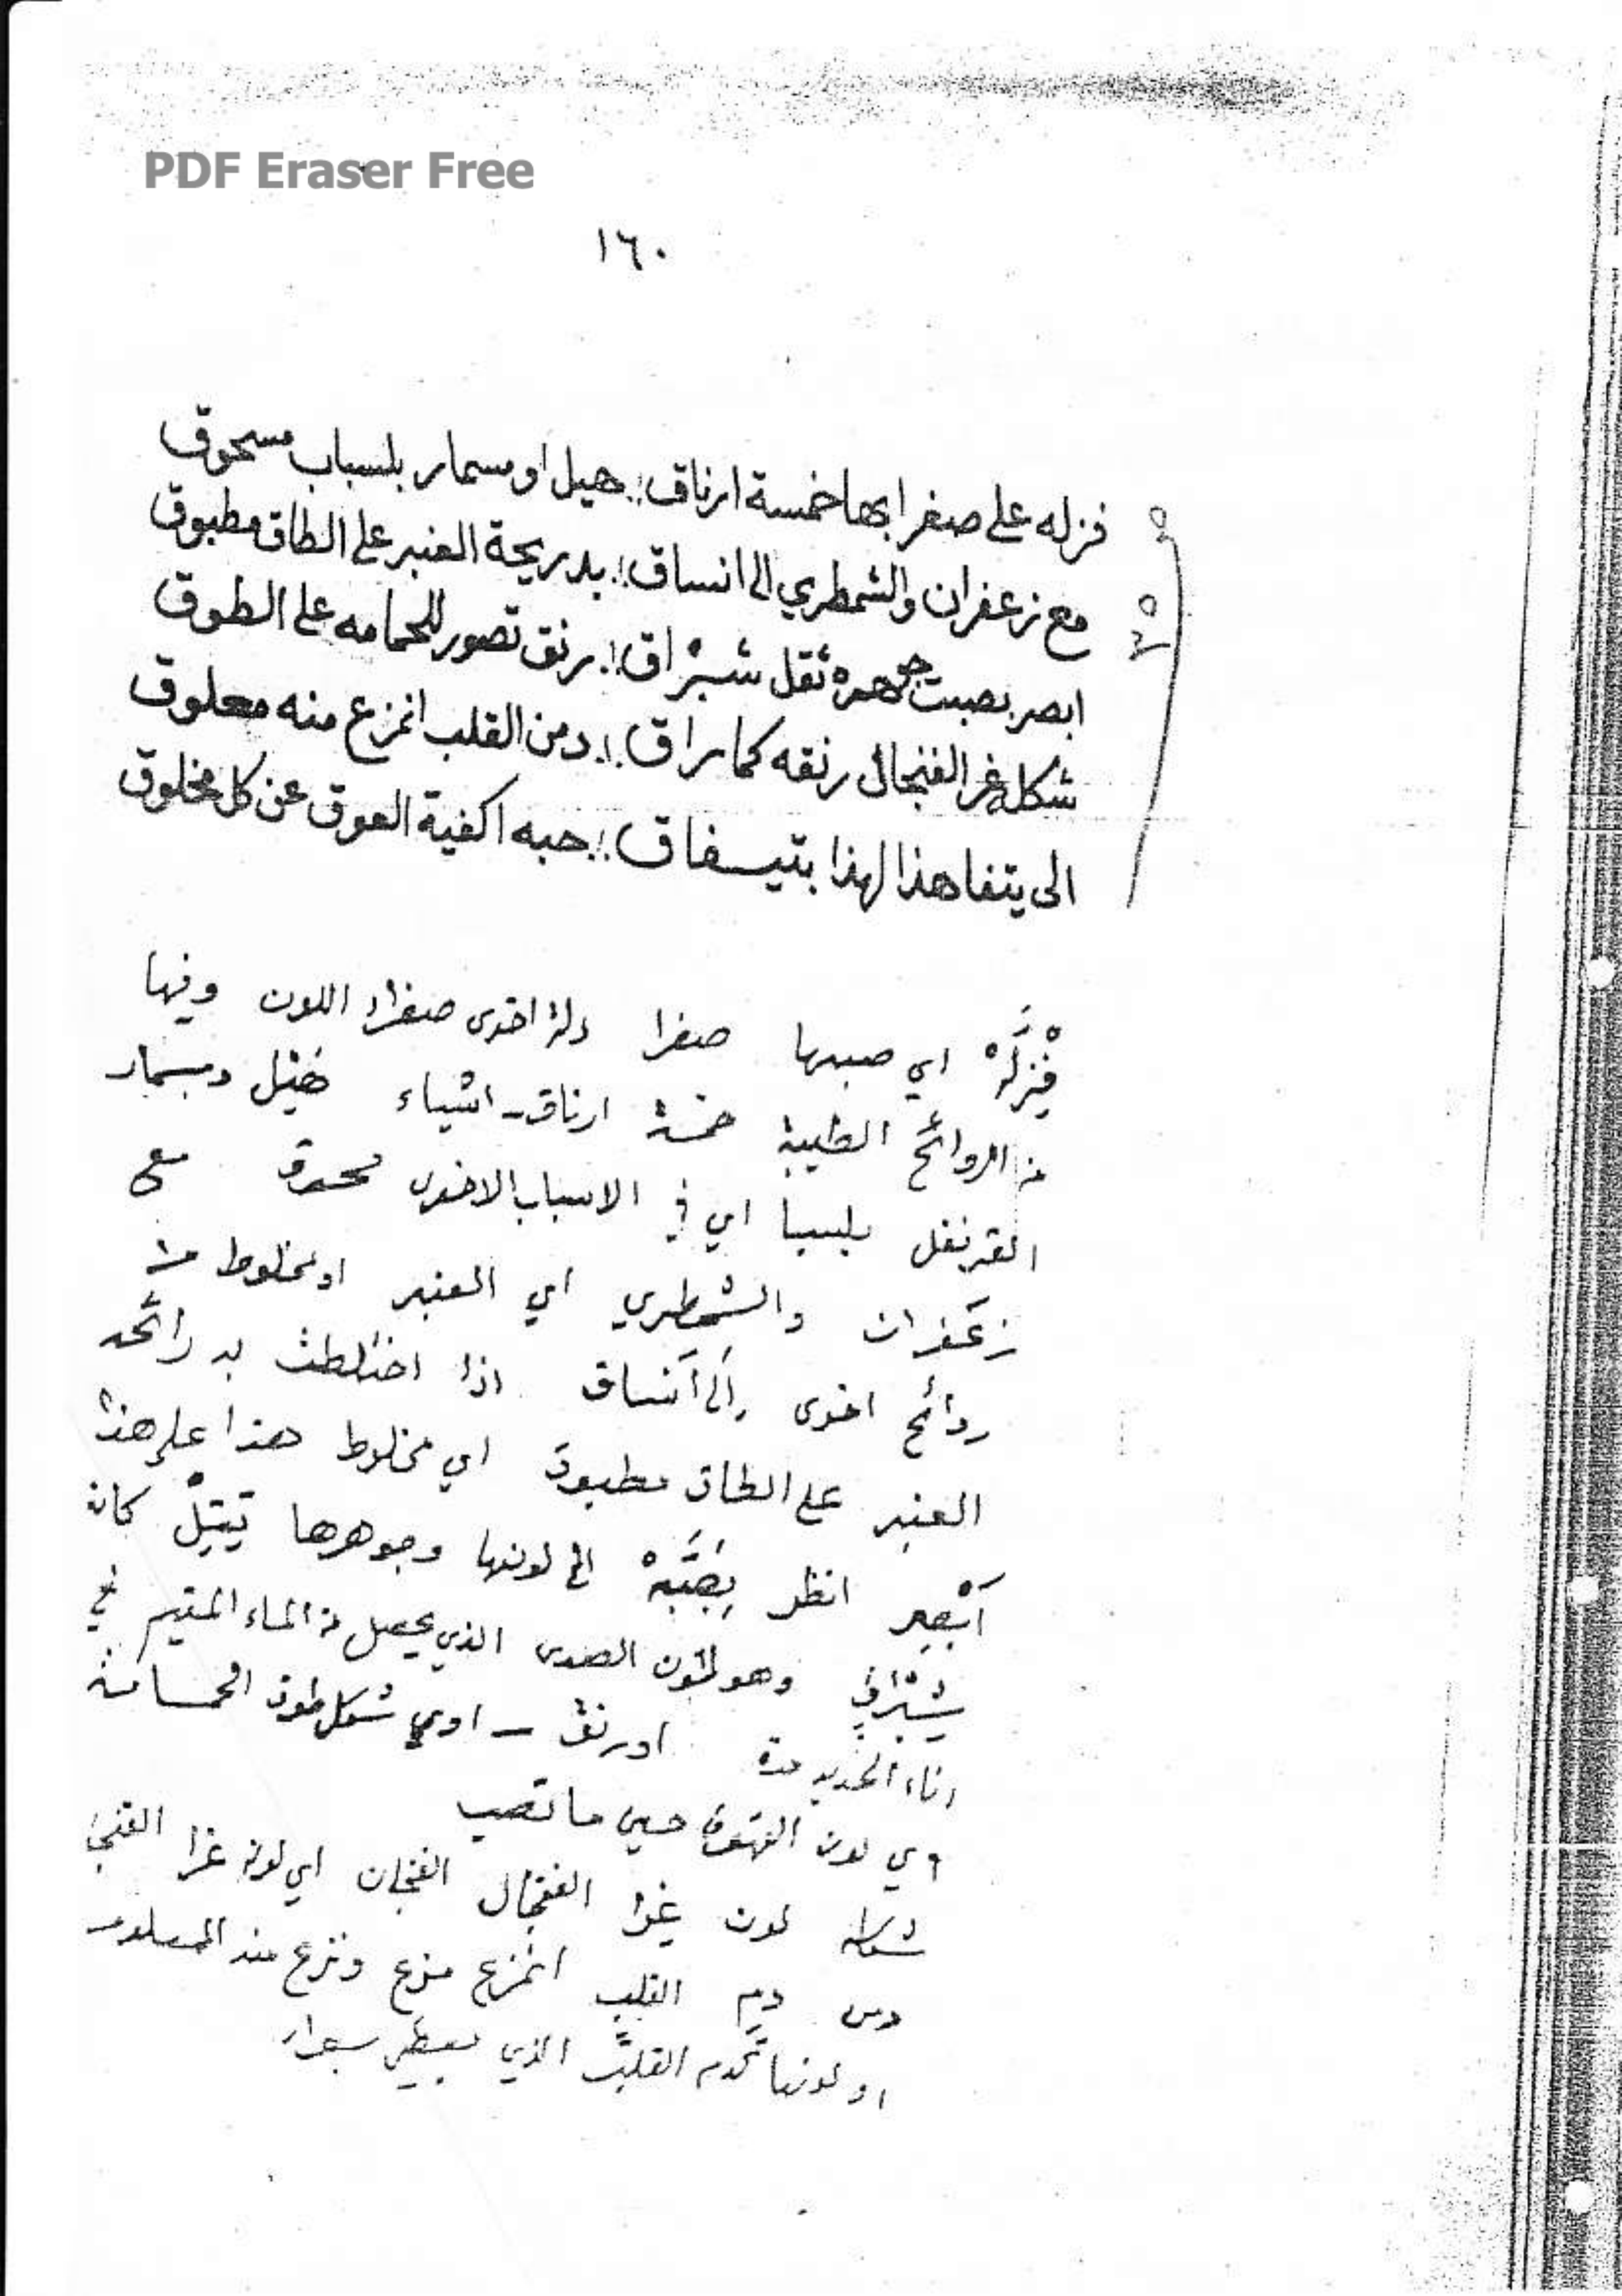 PDF Eraser Free
١٦٠
فزله على صفرا بها خمسة ارناق :. هيل او مسمار بلسباب مسحوق
مع زعفران والشمطري الى انساق :. بدريحة العنبر على الطاق مطبوق
ابصر بصبت جوهره ثقل شبراق :. رنق تصور للحمامه على الطوق
شكله غر الفنجال رنقه كما راق :. دمن القلب انمزع منه معلوق
الى يتفاهذا لهذا بتيسفاق :. حبه اكفية العوق عن كل مخلوق
فزله اي صبها صفرا دلة اخرى صفراء اللون وفيها
من الروائح الطيبة خمسة ارناق - اشياء هيل ومسمار
القرنفل بلسبا اي في الاسباب الاخرى مسحوق مع
زعفران والشمطري اي العنبر او مخلوط من
روائح اخرى الى انساق اذا اختلطت به رائحه
العنبر على الطاق مطبوق اي مخلوط هذا على هذا
أبصر انظر بصبه الى لونها وجوهرها كان
وهو لون الصدى الذي يحصل من الماء المقيم في
اناء الحديد مدة او رنق - اوي شكل طوق الحمامة
وي لون القهوة حين ما تصب
شكله لون غرا الفنجال الفنجان اي لونه غرا الفنجا
دمن دم القلب انمزع مزع ونزع منه المعلوق
او لونها كدم القلب الذي